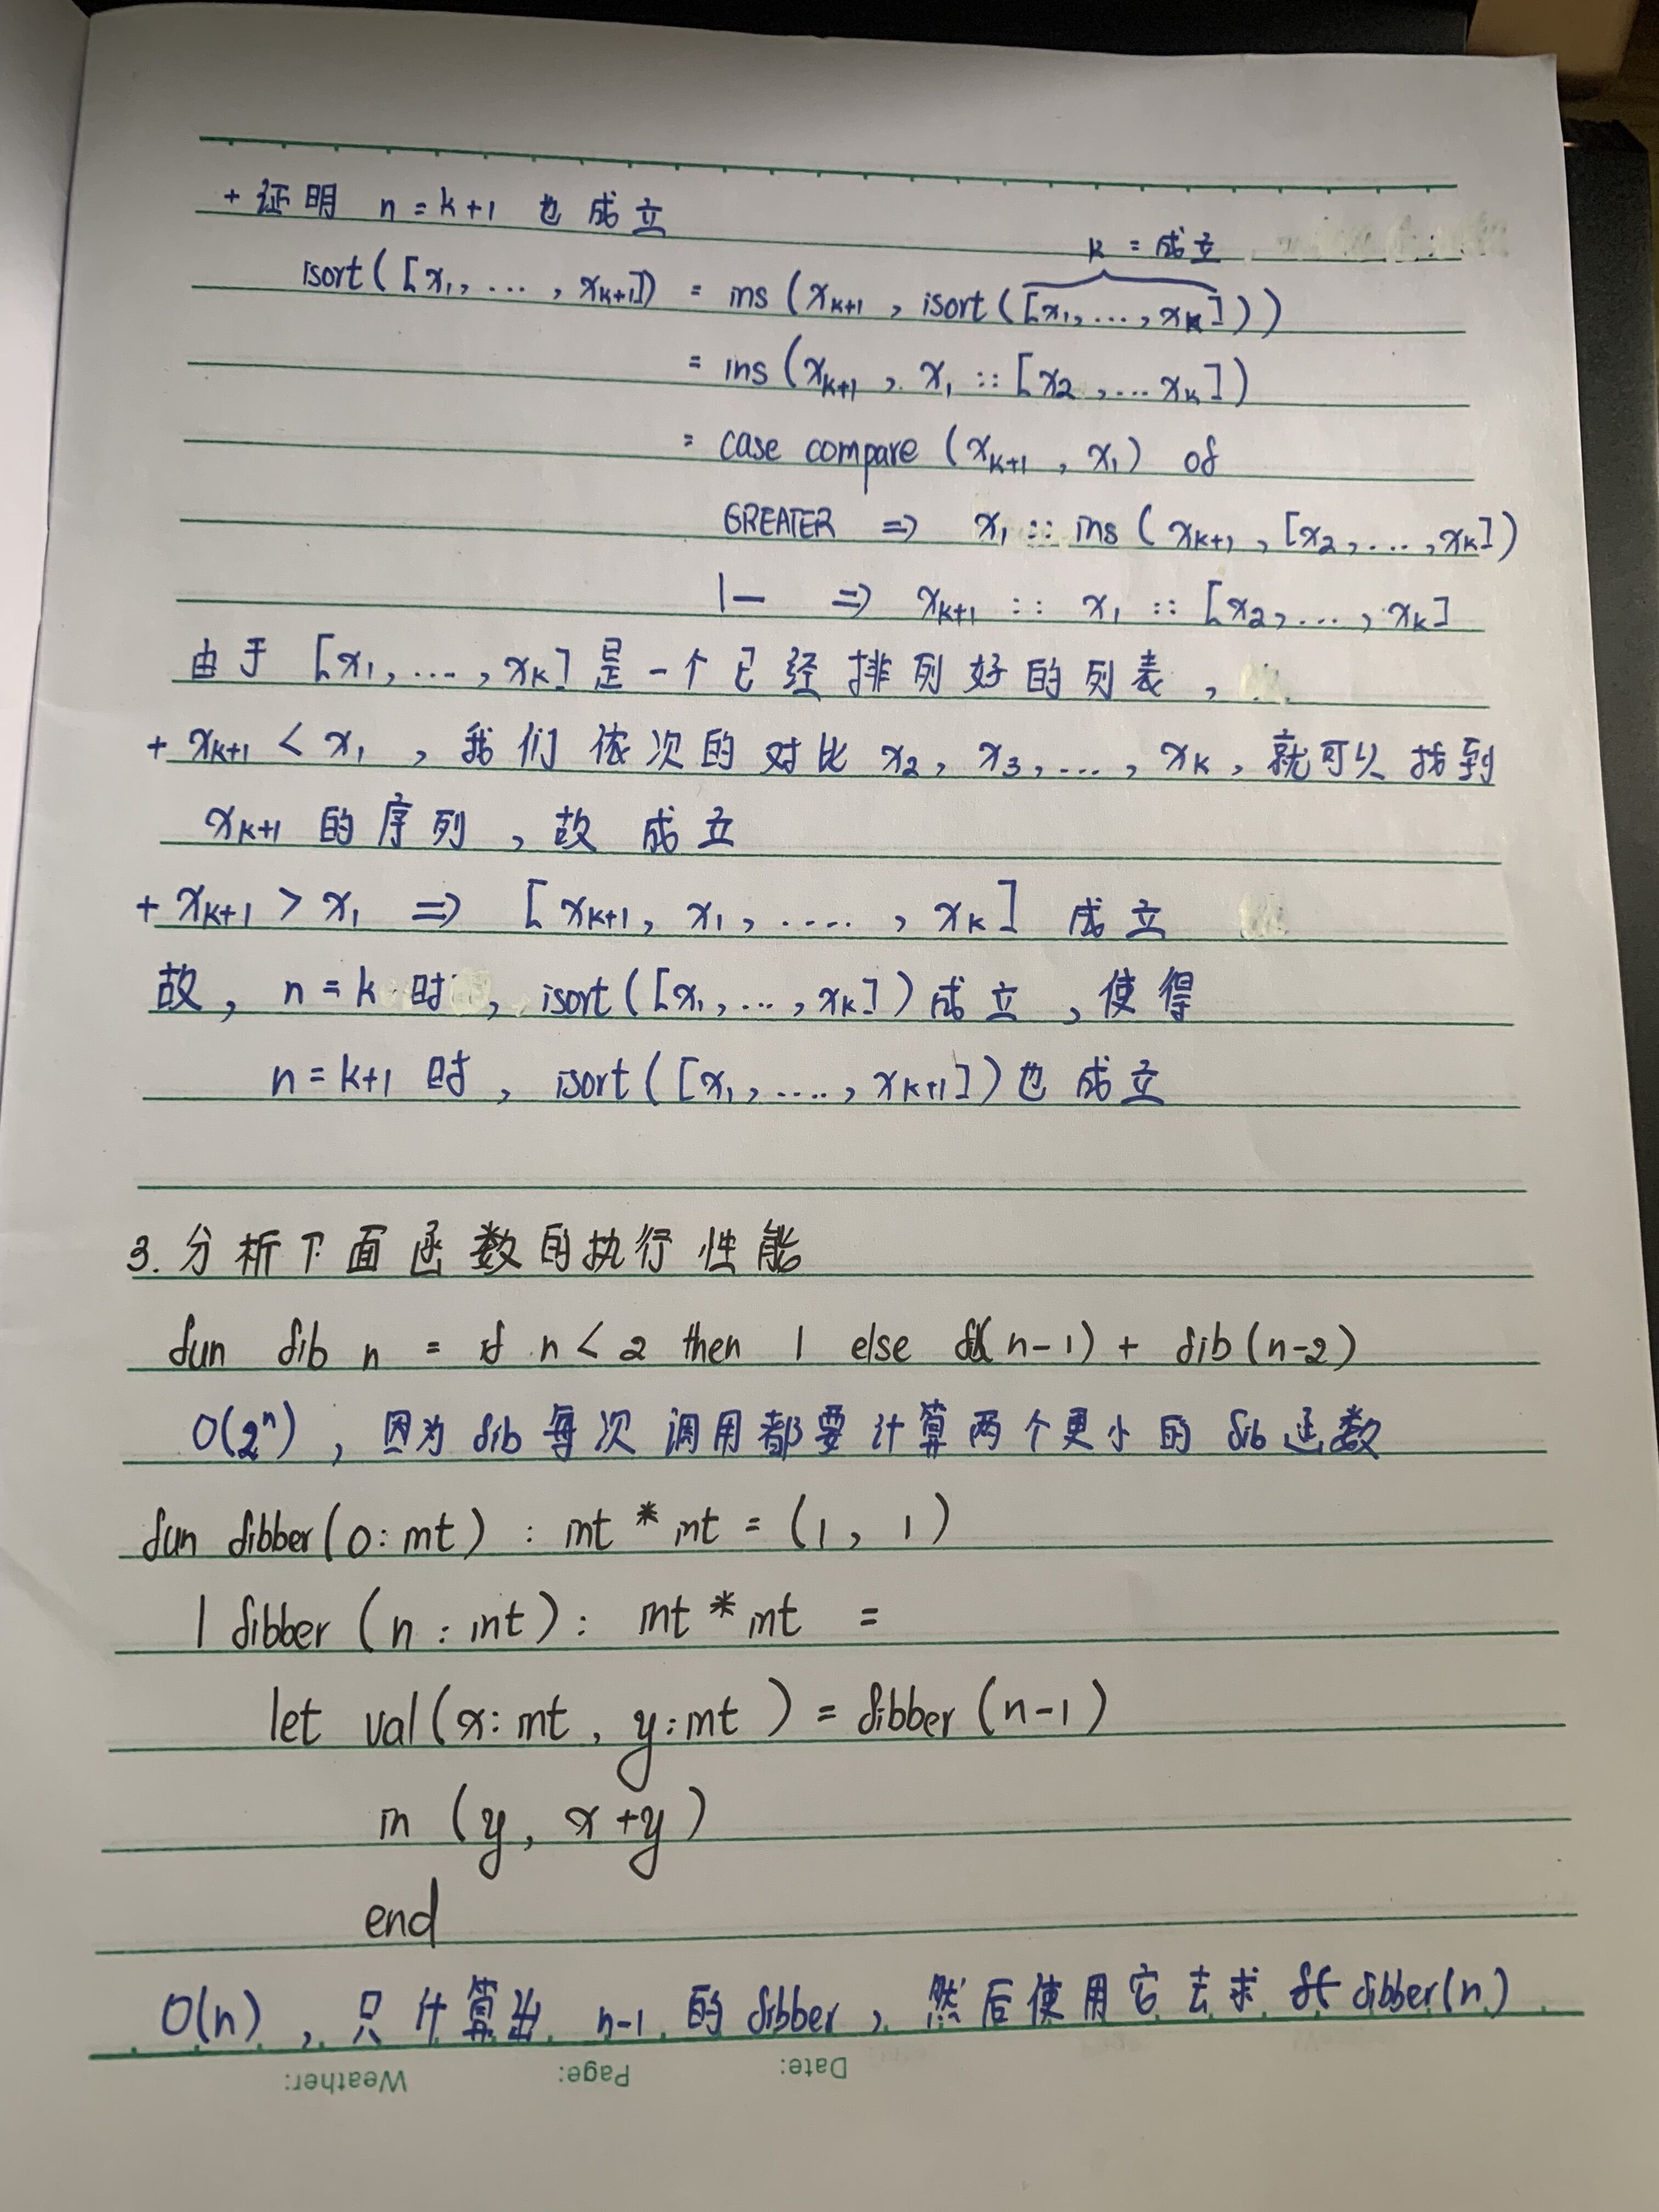 + 证明 n = k+1 也成立
k = 成立
isort([x₁, ... , xₖ₊₁]) = ins (xₖ₊₁ , isort([x₁, ... , xₖ]))
= ins (xₖ₊₁ , x₁ :: [x₂ , ... xₖ])
= case compare (xₖ₊₁ , x₁) of
GREATER => x₁ :: ins ( xₖ₊₁ , [x₂ , ... , xₖ])
| _ => xₖ₊₁ :: x₁ :: [x₂ , ... , xₖ]
由于 [x₁, ... , xₖ] 是一个已经排列好的列表 ,
+ xₖ₊₁ < x₁ , 我们依次的对比 x₂, x₃, ... , xₖ , 就可以找到
xₖ₊₁ 的序列 , 故成立
+ xₖ₊₁ > x₁ => [ xₖ₊₁, x₁ , ..... , xₖ ] 成立
故, n = k 时 , isort([x₁, ... , xₖ]) 成立 , 使得
n = k+1 时 , isort([x₁, .... , xₖ₊₁]) 也成立
3. 分析下面函数的执行性能
fun fib n = if n < 2 then 1 else (n-1) + fib (n-2)
O(2ⁿ) , 因为 fib 每次调用都要计算两个更小的 fib 函数
fun fibber(0: int) : int * int = (1, 1)
| fibber (n : int) : int * int =
let val (x: int , y: int ) = fibber (n-1)
in (y, x+y)
end
O(n) , 只计算出 n-1 的 fibber , 然后使用它去求 fibber(n)
Date: Page: Weather: